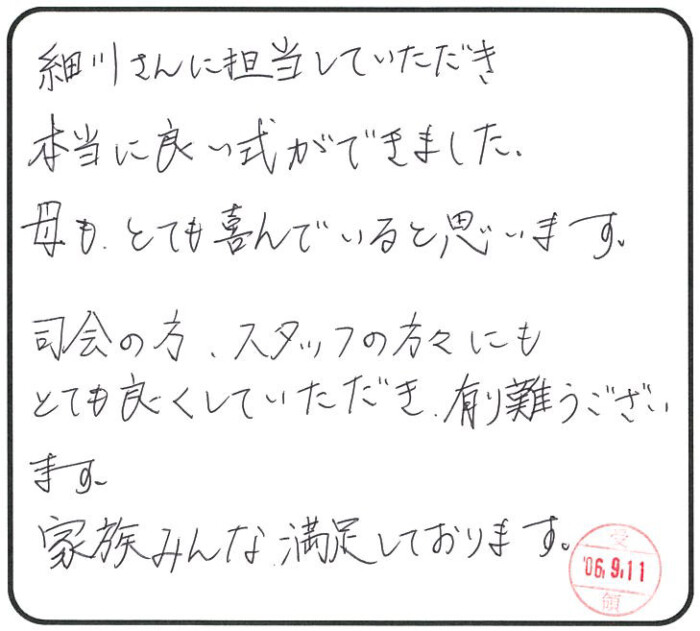 細川さんに担当していただき
本当に良い式ができました、
母も、とても喜んでいると思います。
司会の方、スタッフの方々にも
とても良くしていただき、有り難うござい
ます。
家族みんな満足しております。
受
'06. 9. 11
領